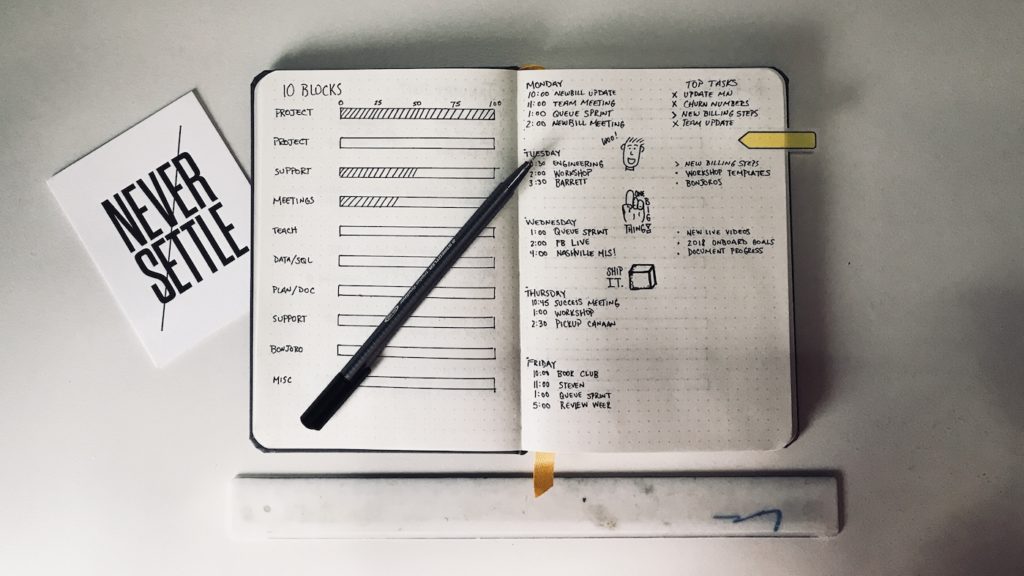 NEVER
SETTLE
10 BLOCKS
0 25 50 75 100
PROJECT
PROJECT
SUPPORT
MEETINGS
TEACH
DATA/SQL
PLAN/DOC
SUPPORT
BONJORO
MISC
MONDAY
10:00 NEWBILL UPDATE
11:00 TEAM MEETING
1:00 QUEUE SPRINT
2:00 NEWBILL MEETING
TOP TASKS
X UPDATE MN
X CHURN NUMBERS
> NEW BILLING STEPS
X TEAM UPDATE
TUESDAY
:30 ENGINEERING
2:00 WORKSHOP
3:30 BARRETT
> NEW BILLING STEPS
• WORKSHOP TEMPLATES
• BONJOROS
ONE
BIG
THING
WEDNESDAY
1:00 QUEUE SPRINT
2:00 FB LIVE
4:00 NASHVILLE MLS!
• NEW LIVE VIDEOS
• 2018 ONBOARD GOALS
• DOCUMENT PROGRESS
SHIP
IT.
THURSDAY
10:45 SUCCESS MEETING
1:00 WORKSHOP
2:30 PICKUP CANAAN
FRIDAY
10:00 BOOK CLUB
11:00 STEVEN
1:00 QUEUE SPRINT
5:00 REVIEW WEEK